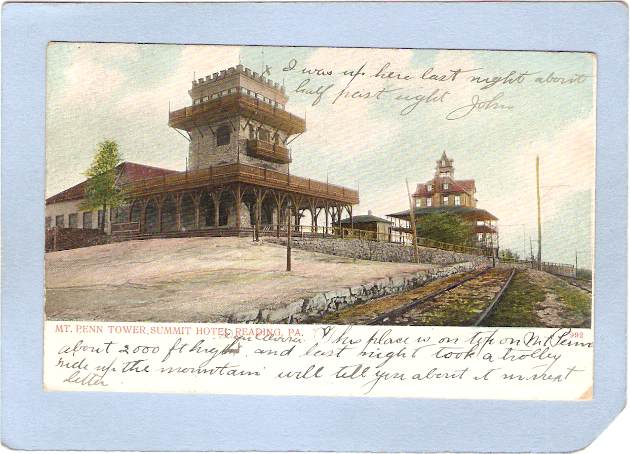 x I was up here last night about
half past eight John
MT. PENN TOWER, SUMMIT HOTEL, READING, PA.
992
x This place is on top on Mt Penn
about 2000 ft high and last night took a trolley
ride up the mountain will tell you about it in next
letter